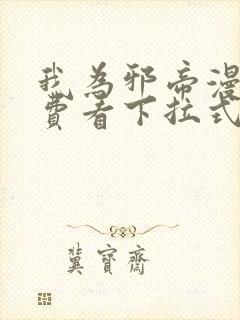 我为邪帝漫
费看下拉式
冀宝斋